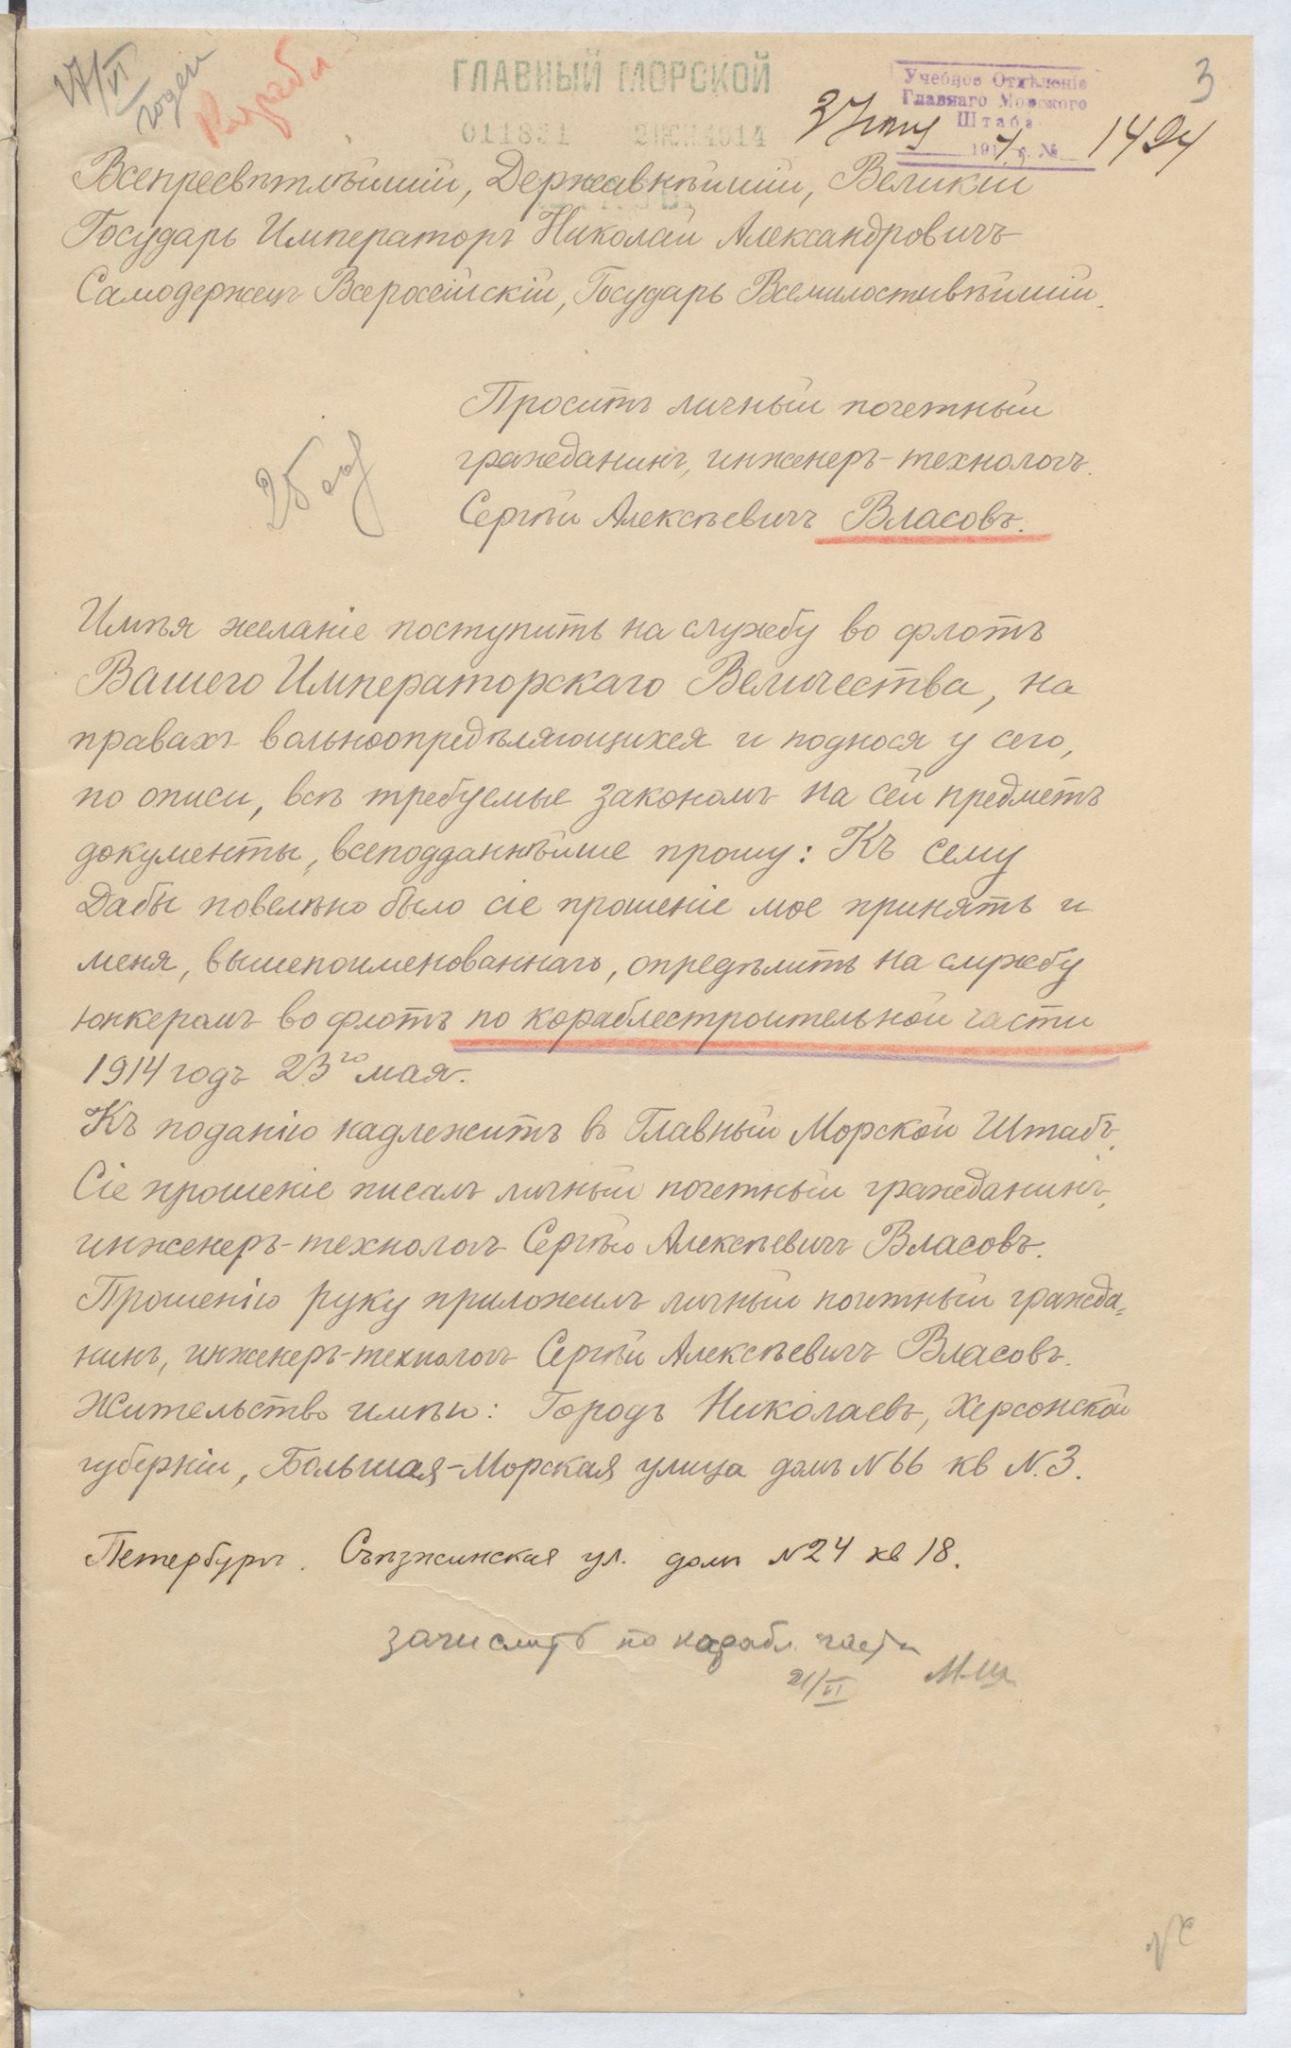 17/VI
годен
Корабл.
ГЛАВНЫЙ МОРСКОЙ
011831 2 ИЮН.1914
Учебное Отдѣленіе
Главнаго Морского
Штаба
3 Іюня 1914 г. № 1494
3
Всепресвѣтлѣйшій, Державнѣйшій, Великій
Государь Императоръ Николай Александровичъ
Самодержецъ Всероссійскій, Государь Всемилостивѣйшій.
Проситъ личный почетный
гражданинъ, инженеръ-технологъ
Сергѣй Алексѣевичъ Власовъ.
Имѣя желаніе поступить на службу во флотъ
Вашего Императорскаго Величества, на
правахъ вольноопредѣляющихся и поднося у сего,
по описи, всѣ требуемые закономъ на сей предметъ
документы, всеподданнѣйше прошу: Къ сему
Дабы повелѣно было сіе прошеніе мое принять и
меня, вышепоименованнаго, опредѣлить на службу
юнкеромъ во флотъ по кораблестроительной части
1914 годъ 23го мая.
Къ поданію надлежитъ въ Главный Морской Штабъ.
Сіе прошеніе писалъ личный почетный гражданинъ,
инженеръ-технологъ Сергѣй Алексѣевичъ Власовъ.
Прошенію руку приложилъ личный почетный гражда=
нинъ, инженеръ-технологъ Сергѣй Алексѣевичъ Власовъ.
Жительство имѣю: Городъ Николаевъ, Херсонской
губерніи, Большая-Морская улица домъ №66 кв №.3.
Петербургъ. Съѣзжинская ул. домъ №24 кв 18.
зачислить по корабл. части
21/VI